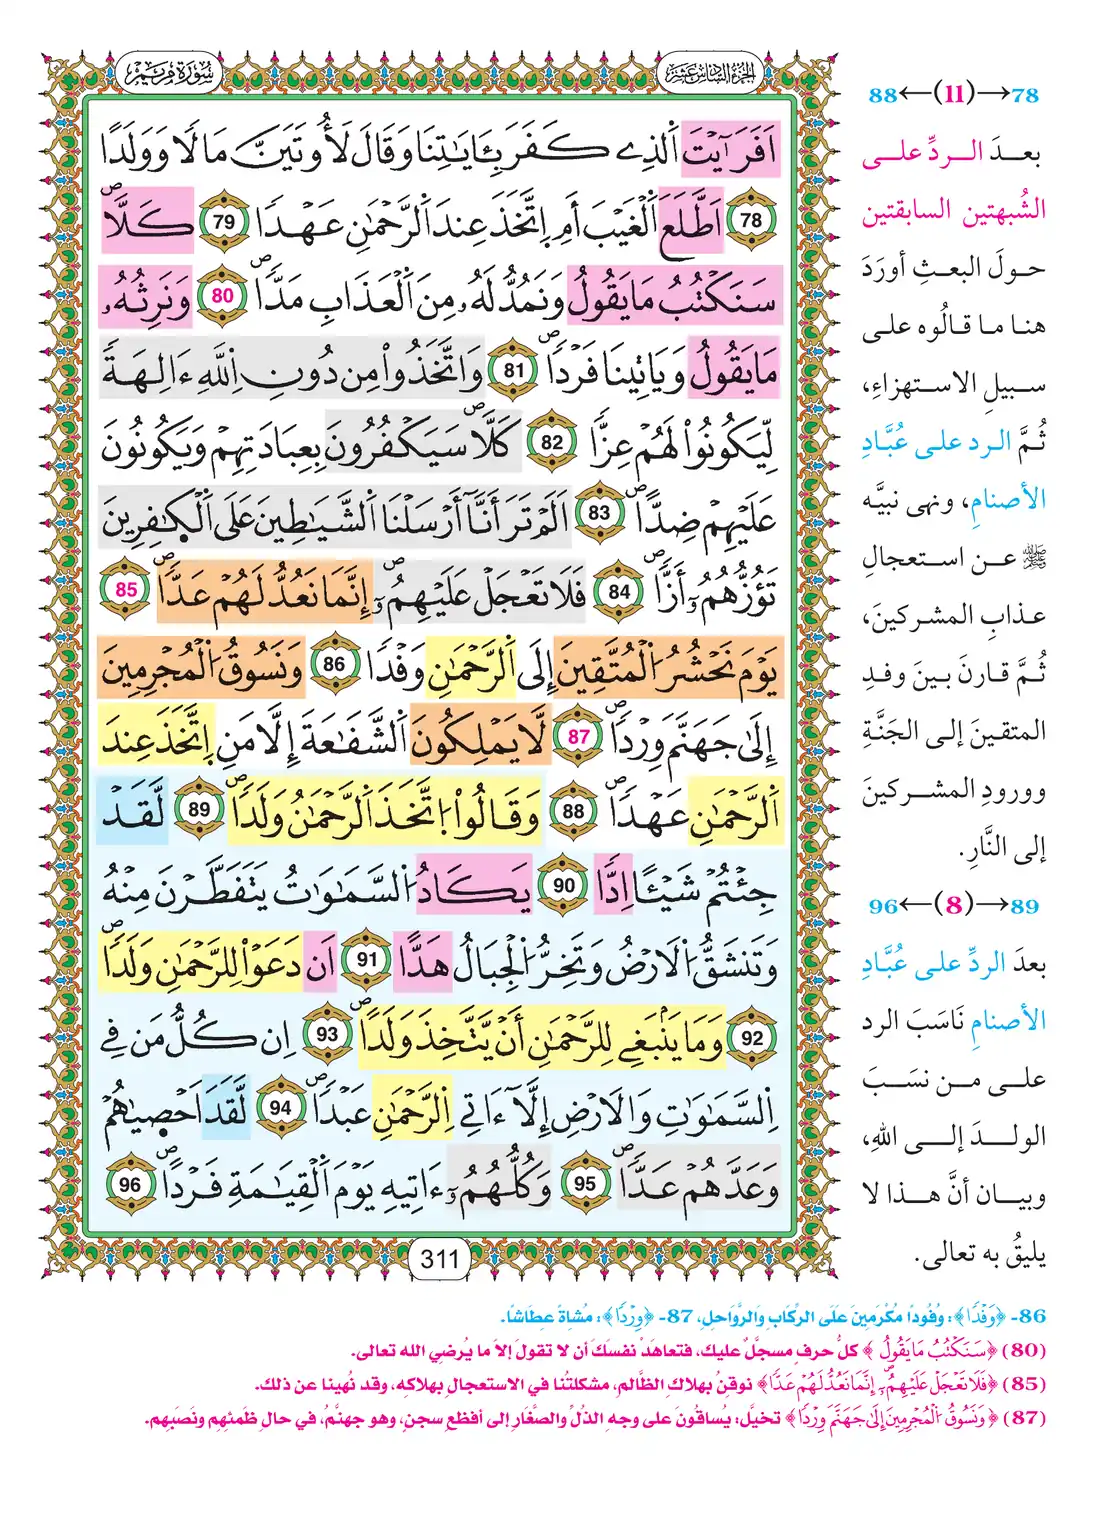 الجزء السادس عشر
سورة مريم
اَفَرَٰٓيْتَ اَلذِے كَفَرَ بِـَٔايَٰتِنَا وَقَالَ لَأُوتَيَنَّ مَالًا وَوَلَدًا
78 اَطَّلَعَ اَلْغَيْبَ أَمِ اِتَّخَذَ عِندَ اَلرَّحْمَٰنِ عَهْدًاۖ 79 كَلَّاۖ
سَنَكْتُبُ مَا يَقُولُ وَنَمُدُّ لَهُۥ مِنَ اَلْعَذَابِ مَدًّاۖ 80 وَنَرِثُهُۥ
مَا يَقُولُ وَيَاتِينَا فَرْدًاۖ 81 وَاتَّخَذُواْ مِن دُونِ اِللَّهِ ءَالِهَةً
لِّيَكُونُواْ لَهُمْ عِزًّا 82 كَلَّاۖ سَيَكْفُرُونَ بِعِبَادَتِهِمْ وَيَكُونُونَ
عَلَيْهِمْ ضِدًّاۖ 83 اَلَمْ تَرَ أَنَّآ أَرْسَلْنَا اَلشَّيَٰطِينَ عَلَى اَلْكَٰفِرِينَ
تَؤُزُّهُمُۥٓ أَزًّاۖ 84 فَلَا تَعْجَلْ عَلَيْهِمُۥٓۖ إِنَّمَا نَعُدُّ لَهُمْ عَدًّاۖ 85
يَوْمَ نَحْشُرُ اُلْمُتَّقِينَ إِلَى اَلرَّحْمَٰنِ وَفْدًا 86 وَنَسُوقُ اُلْمُجْرِمِينَ
إِلَىٰ جَهَنَّمَ وِرْدًاۖ 87 لَّا يَمْلِكُونَ اَلشَّفَٰعَةَ إِلَّا مَنِ اِتَّخَذَ عِندَ
اَلرَّحْمَٰنِ عَهْدًاۖ 88 وَقَالُواْ اُتَّخَذَ اَلرَّحْمَٰنُ وَلَدًاۖ 89 لَّقَدْ
جِئْتُمْ شَيْـًٔا اِدًّا 90 يَكَادُ اُلسَّمَٰوَٰتُ يَتَفَطَّرْنَ مِنْهُ
وَتَنشَقُّ اُلَارْضُ وَتَخِرُّ اُلْجِبَالُ هَدًّا 91 اَن دَعَوْاْ لِلرَّحْمَٰنِ وَلَدًاۖ
92 وَمَا يَنۢبَغِے لِلرَّحْمَٰنِ أَنْ يَّتَّخِذَ وَلَدًاۖ 93 اِن كُلُّ مَن فِے
اِلسَّمَٰوَٰتِ وَالَارْضِ إِلَّآ ءَاتِے اِلرَّحْمَٰنِ عَبْدًاۖ 94 لَّقَدَ اَحْصَيٰهُمْ
وَعَدَّهُمْ عَدًّاۖ 95 وَكُلُّهُمُۥٓ ءَاتِيهِ يَوْمَ اَلْقِيَٰمَةِ فَرْدًاۖ 96
311
78→(11)←88
بعدَ الردِّ على
الشُبهتين السابقتين
حولَ البعثِ أورَدَ
هنا ما قالُوه على
سبيلِ الاستهزاءِ،
ثُمَّ الرد على عُبَّادِ
الأصنامِ، ونهى نبيَّه
ﷺ عن استعجالِ
عذابِ المشركينَ،
ثُمَّ قارنَ بينَ وفدِ
المتقينَ إلى الجَنَّةِ
وورودِ المشركينَ
إلى النَّارِ.
89→(8)←96
بعدَ الردِّ على عُبَّادِ
الأصنامِ نَاسَبَ الرد
على من نسَبَ
الولدَ إلى اللهِ،
وبيان أنَّ هذا لا
يليقُ به تعالى.
86- ﴿وَفْدًا﴾: وُفُودًا مُكْرَمِينَ عَلَى الرِّكَابِ وَالرَّوَاحِلِ، 87- ﴿وِرْدًا﴾: مُشَاةً عِطَاشًا.
(80) ﴿سَنَكْتُبُ مَا يَقُولُ﴾ كلُّ حرفٍ مسجلٌ عليك، فتعاهَدْ نفسَكَ أن لا تقولَ إلا ما يُرضي الله تعالى.
(85) ﴿فَلَا تَعْجَلْ عَلَيْهِمُۥٓۖ إِنَّمَا نَعُدُّ لَهُمْ عَدًّا﴾ نوقنُ بهلاكِ الظَّالمِ، مشكلتُنا في الاستعجالِ بهلاكِه، وقد نُهينا عن ذلك.
(87) ﴿وَنَسُوقُ اُلْمُجْرِمِينَ إِلَىٰ جَهَنَّمَ وِرْدًا﴾ تخيَّل: يُساقُونَ على وجهِ الذُلِّ والصَّغَارِ إلى أفظعِ سجنٍ، وهو جهنَّمُ، في حالِ ظَمَئِهِم ونَصَبِهِم.